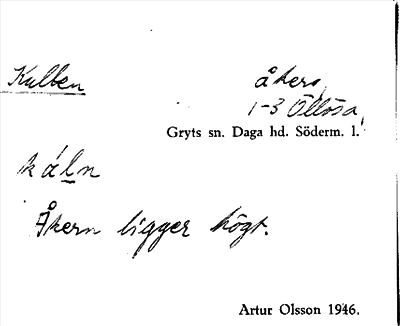 Kullen
åkers
1-3 Öllösa
Gryts sn. Daga hd. Söderm. l.
k áln
Åkern ligger högt.
Artur Olsson 1946.